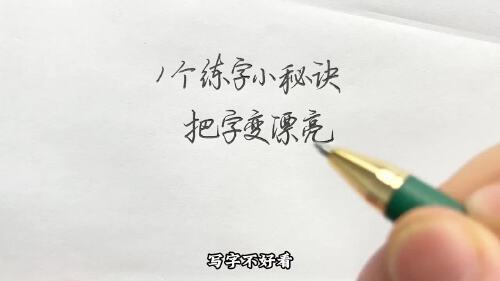 1个练字小秘诀
把字变漂亮
写字不好看